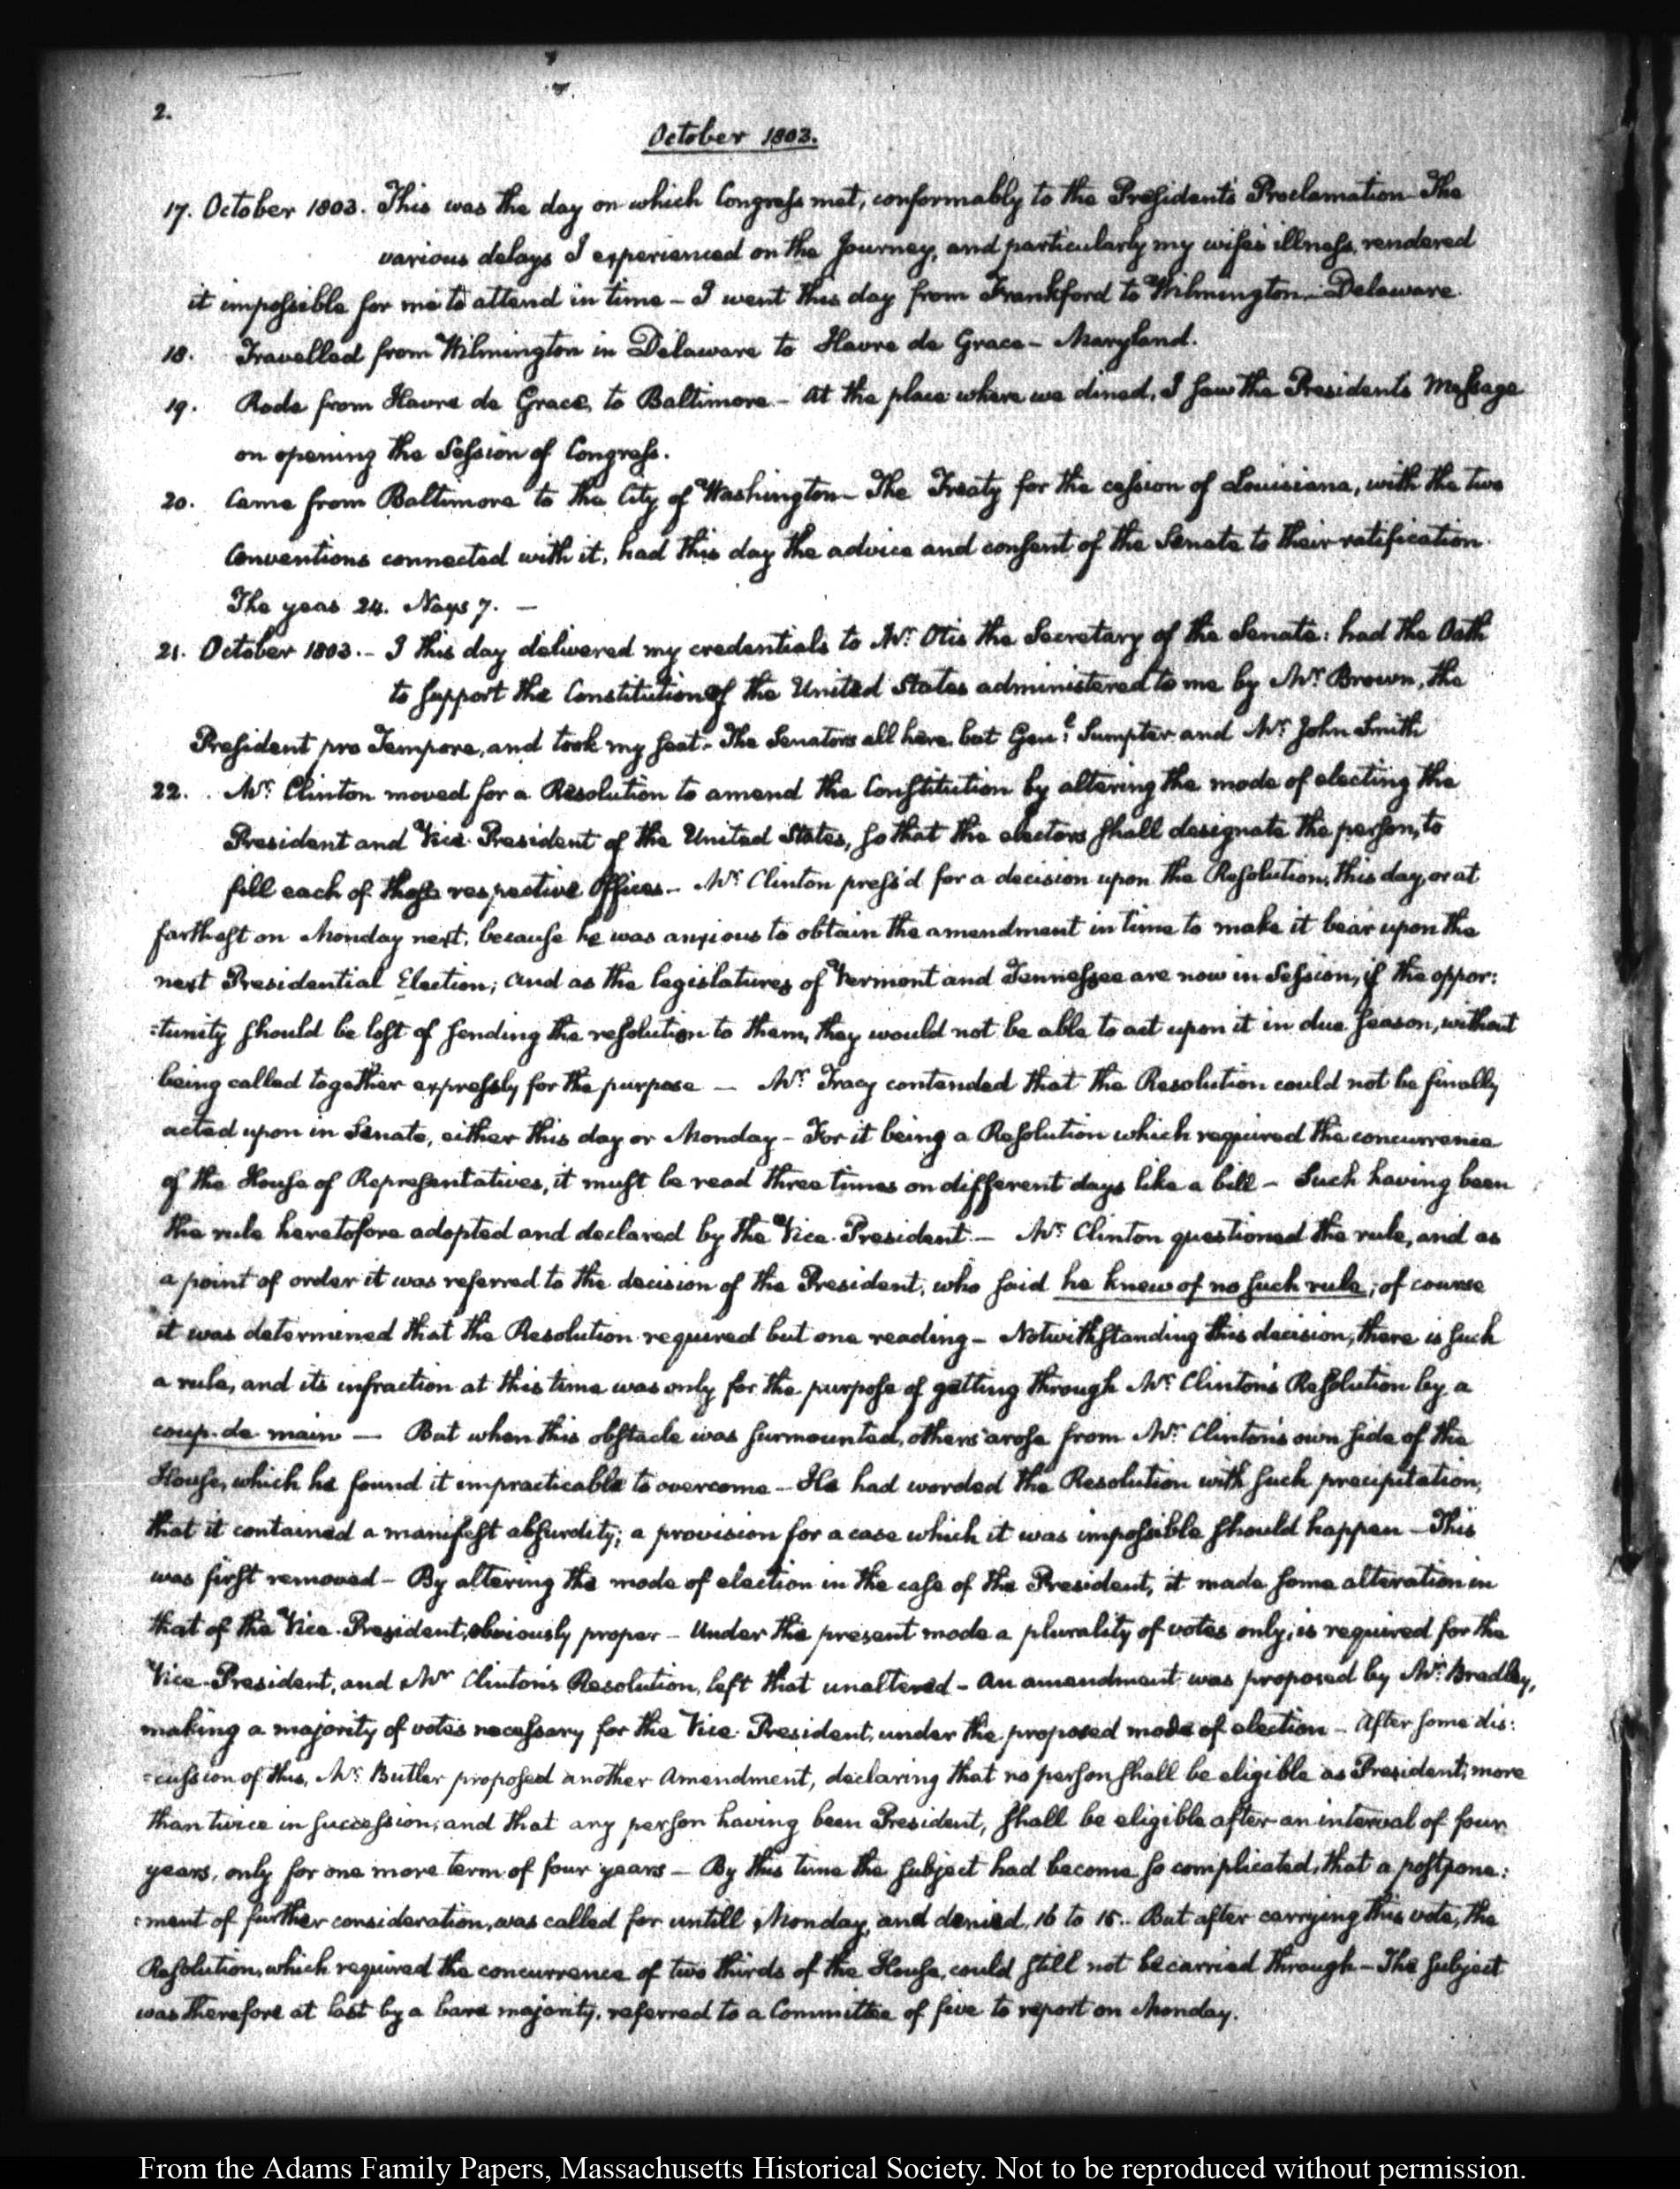 2.
October 1803.
17. October 1803. This was the day on which Congress met, conformably to the President's Proclamation The
various delays I experienced on the Journey, and particularly my wife's illness, rendered
it impossible for me to attend in time – I went this day from Frankford to Wilmington – Delaware.
18. Travelled from Wilmington in Delaware to Havre de Grace – Maryland.
19. Rode from Havre de Grace, to Baltimore – At the place where we dined, I saw the Presidents Message
on opening the Session of Congress.
20. Came from Baltimore to the City of Washington – The Treaty for the cession of Louisiana, with the two
Conventions connected with it, had this day the advice and consent of the Senate to their ratification.
The yeas 24. Nays 7. —
21. October 1803. – I this day delivered my credentials to Mr. Otis the Secretary of the Senate: had the Oath
to support the Constitution of the United States administered to me by Mr. Brown, the
President pro Tempore, and took my seat – The Senators all here but Genl. Sumpter and Mr. John Smith
22. Mr. Clinton moved for a Resolution to amend the Constitution by altering the mode of electing the
President and Vice President of the United States, so that the electors shall designate the person, to
fill each of those respective Offices – Mr. Clinton press'd for a decision upon the Resolution, this day, or at
farthest on Monday next, because he was anxious to obtain the amendment in time to make it bear upon the
next Presidential Election; and as the legislatures of Vermont and Tennessee are now in Session, if the oppor:
:tunity should be lost of sending the resolution to them, they would not be able to act upon it in due season, without
being called together expressly for the purpose — Mr. Tracy contended that the Resolution could not be finally
acted upon in Senate, either this day or Monday – For it being a Resolution which required the concurrence
of the House of Representatives, it must be read three times on different days like a bill – Such having been
the rule heretofore adopted and declared by the Vice-President – Mr. Clinton questioned the rule, and as
a point of order it was referred to the decision of the President, who said he knew of no such rule; of course
it was determined that the Resolution required but one reading – Notwithstanding this decision, there is such
a rule, and its infraction at this time was only for the purpose of getting through Mr. Clinton's Resolution by a
coup-de main — But when this obstacle was surmounted, others arose from Mr. Clinton's own side of the
House, which he found it impracticable to overcome – He had worded the Resolution with such precipitation,
that it contained a manifest absurdity; a provision for a case which it was impossible should happen – This
was first removed – By altering the mode of election in the case of the President, it made some alteration in
that of the Vice-President, obviously proper – Under the present mode a plurality of votes only, is required for the
Vice-President, and Mr. Clinton's Resolution, left that unaltered – An amendment was proposed by Mr. Bradley,
making a majority of votes necessary for the Vice-President, under the proposed mode of election – After some dis:
:cussion of this, Mr. Butler proposed another Amendment, declaring that no person shall be eligible as President, more
than twice in succession; and that any person having been President, shall be eligible after an interval of four
years, only for one more term of four years – By this time the subject had become so complicated, that a postpone:
:ment of further consideration, was called for untill Monday, and denied, 16 to 15. But after carrying this vote, the
Resolution, which required the concurrence of two thirds of the House, could still not be carried through – The subject
was therefore at last by a bare majority, referred to a Committee of five to report on Monday.
From the Adams Family Papers, Massachusetts Historical Society. Not to be reproduced without permission.